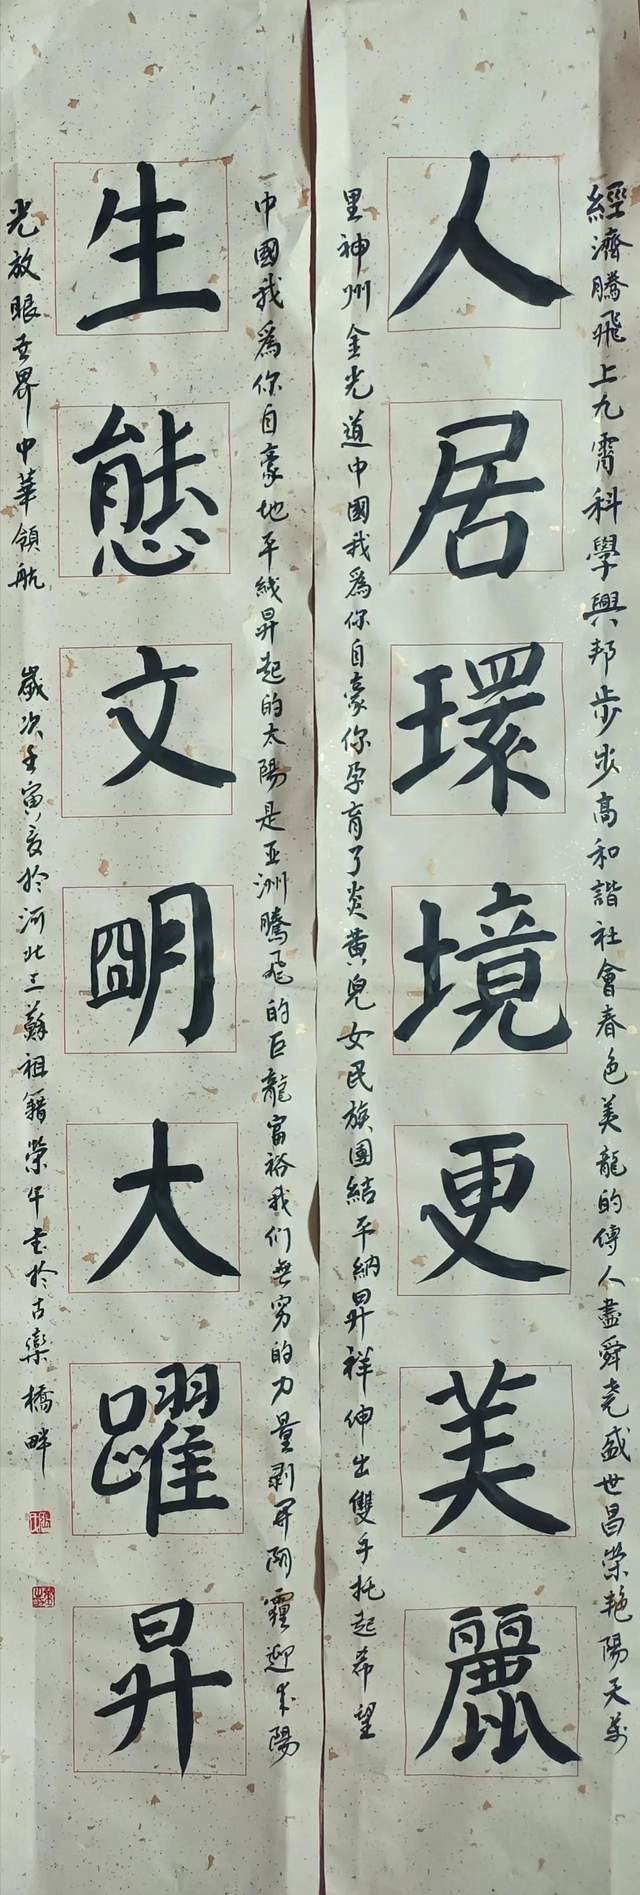 經濟騰飛上九霄科學興邦步步高和諧社會春色美龍的傳人盡舜堯盛世昌榮艳陽天萬
人居環境更美麗
里神州金光道中國我爲你自豪你孕育了炎黄兒女民族團結平納昇祥伸出雙手托起希望
中國我爲你自豪地平綫昇起的太陽是亚洲騰飛的巨龍富裕我们無穷的力量剥開陰霾迎来陽
生態文明大躍昇
光放眼世界中華領航
歲次壬寅夏於河北三蘇祖籍榮午書於古欒橋畔